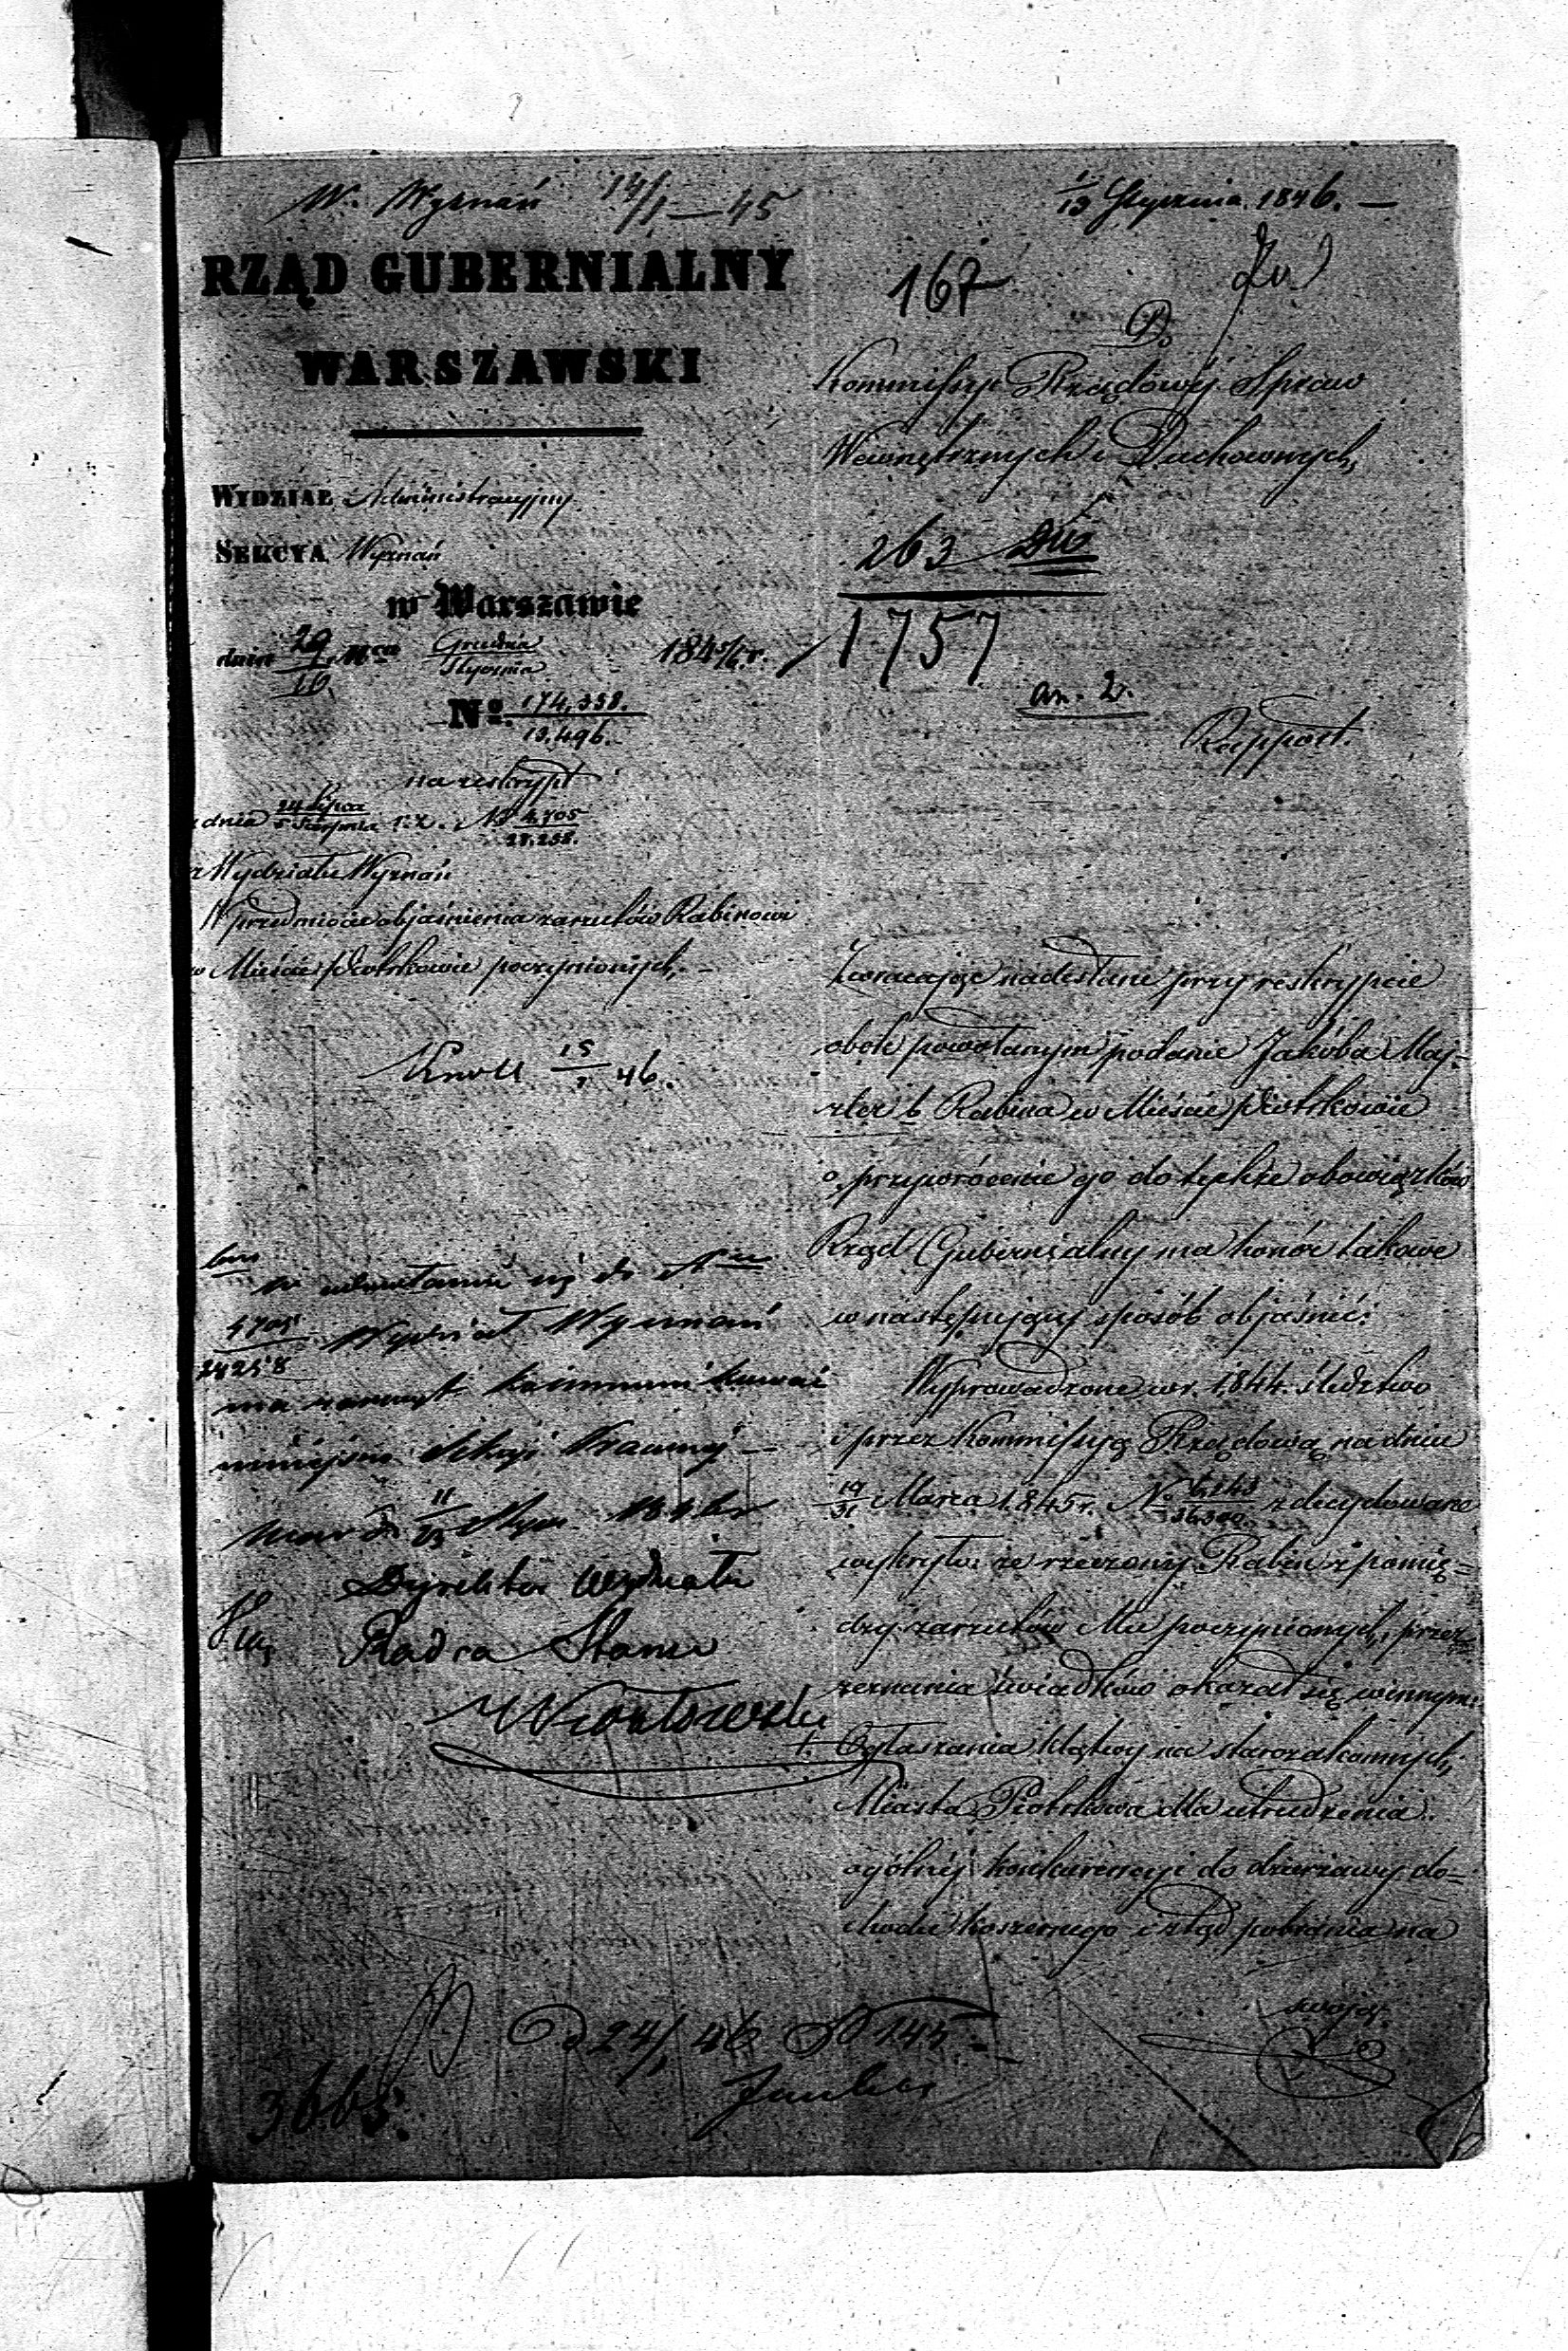 W. Wyznań 14/1 — 45
1/13 Stycznia 1846. —
RZĄD GUBERNIALNY
WARSZAWSKI
167
Do
Kommissyi Rządowéj Spraw
Wewnętrznych i Duchownych,
WYDZIAŁ Administracyjny
SEKCYA Wyznań
w Warszawie
dnia 29/10 Mca Grudnia/Stycznia 1845/6 r.
No. 174,358./19.496.
263
1757
an. 2.
Rapport.
na reskrypt
z dnia 24 Lipca/5 Sierpnia r. z. No 4,705/28.258.
z Wydziału Wyznań
W przedmiocie objaśnienia zarzutów Rabinowi
w Mieście Piotrkowie poczynionych. —
Knoll 15/1 46.
Zwracając nadesłane przy reskrypcie
obok powołanym podanie Jakóba Maj-
zler b. Rabina w Mieście Piotrkowie
o przywrócenie go do tychże obowiązków
Rząd Gubernialny ma honor takowe
w następujący sposób objaśnić:
Wyprowadzone w r. 1844. śledztwo
i przez Kommissyą Rządową na dniu
19/31 Marca 1845 r. No zdecydowane
wykryło: że rzeczony Rabin z pomię-
dzy zarzutów Mu poczynionych, przez
zeznania świadków okazał się winnym:
1. Ogłaszania klątwy na starozakonnych,
Miasta Piotrkowa dla utrudzenia
ogólnéj konkurencyi do dzierżawy do-
chodu koszernego i ztąd pobrania na
swoją
w odwołaniu się do Nru
4705/28258 Wydział Wyznań
ma zaszczyt kommunikować
niniejsze Sekcyi
d. 11/23 Stycz. 1846 r
Dyrektor Wydziału
Radca Stanu
24/1 46 145.
3665.